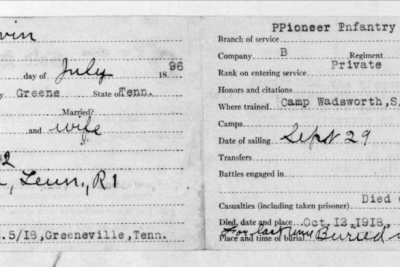 vin
day of July 18 96
y Greene State of Tenn.
Married?
and wife
2
, Tenn, R1
.5/18, Greneville, Tenn.
PPioneer Pnfantry
Branch of service
Company B Regiment
Rank on entering service Private
Honors and citations
Where trained Camp Wadsworth, S.
Camps
Date of sailing Sept 29
Transfers
Battles engaged in
Casualties (including taken prisoner) Died
Died, date and place Oct. 12, 1918,
Place and time of burial Buried